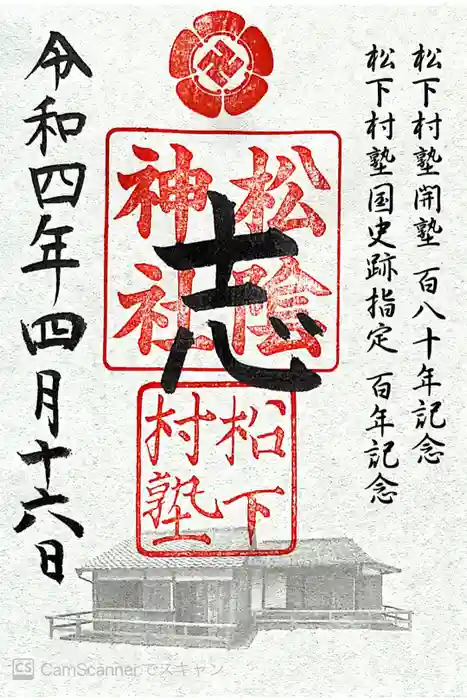 松下村塾開塾 百八十年記念
松下村塾国史跡指定 百年記念
松陰神社
志
松下村塾
令和四年四月十六日
CS CamScannerでスキャン